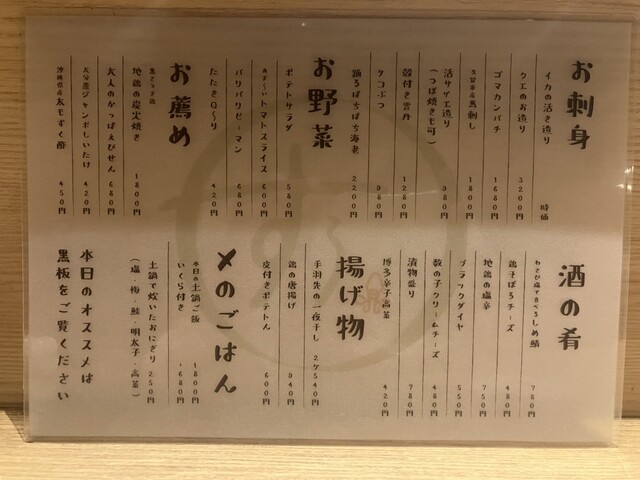 お刺身
イカの活き造り 時価
クエのお造り 3200円
ゴマカンパチ 1680円
久留米産馬刺し 1800円
活サザエ造り
（つぼ焼きも可） 980円
殻付き雲丹 1280円
タコぶつ 980円
踊るぱちぱち海老 2200円
お野菜
ポテトサラダ 580円
トマトスライス 600円
パリパリピーマン 680円
たたきQ〜り 420円
お薦め
地鶏の炭火焼き 1800円
大人のかっぱえびせん 680円
大分産ジャンボしいたけ 420円
沖縄県産太もずく酢 450円
酒の肴
わさび塩で食べるしめ鯖 780円
鶏そぼろチーズ 480円
地鶏の塩辛 750円
ブラックダイヤ 550円
数の子クリームチーズ 480円
漬物盛り 780円
博多辛子高菜 420円
揚げ物
手羽先の一夜干し 2ケ540円
鶏の唐揚げ 940円
皮付きポテトん 600円
〆のごはん
本日の土鍋ご飯 1800円
いくら付き 1680円
土鍋で炊いたおにぎり 250円
（塩・梅・鮭・明太子・高菜）
本日のオススメは
黒板をご覧ください